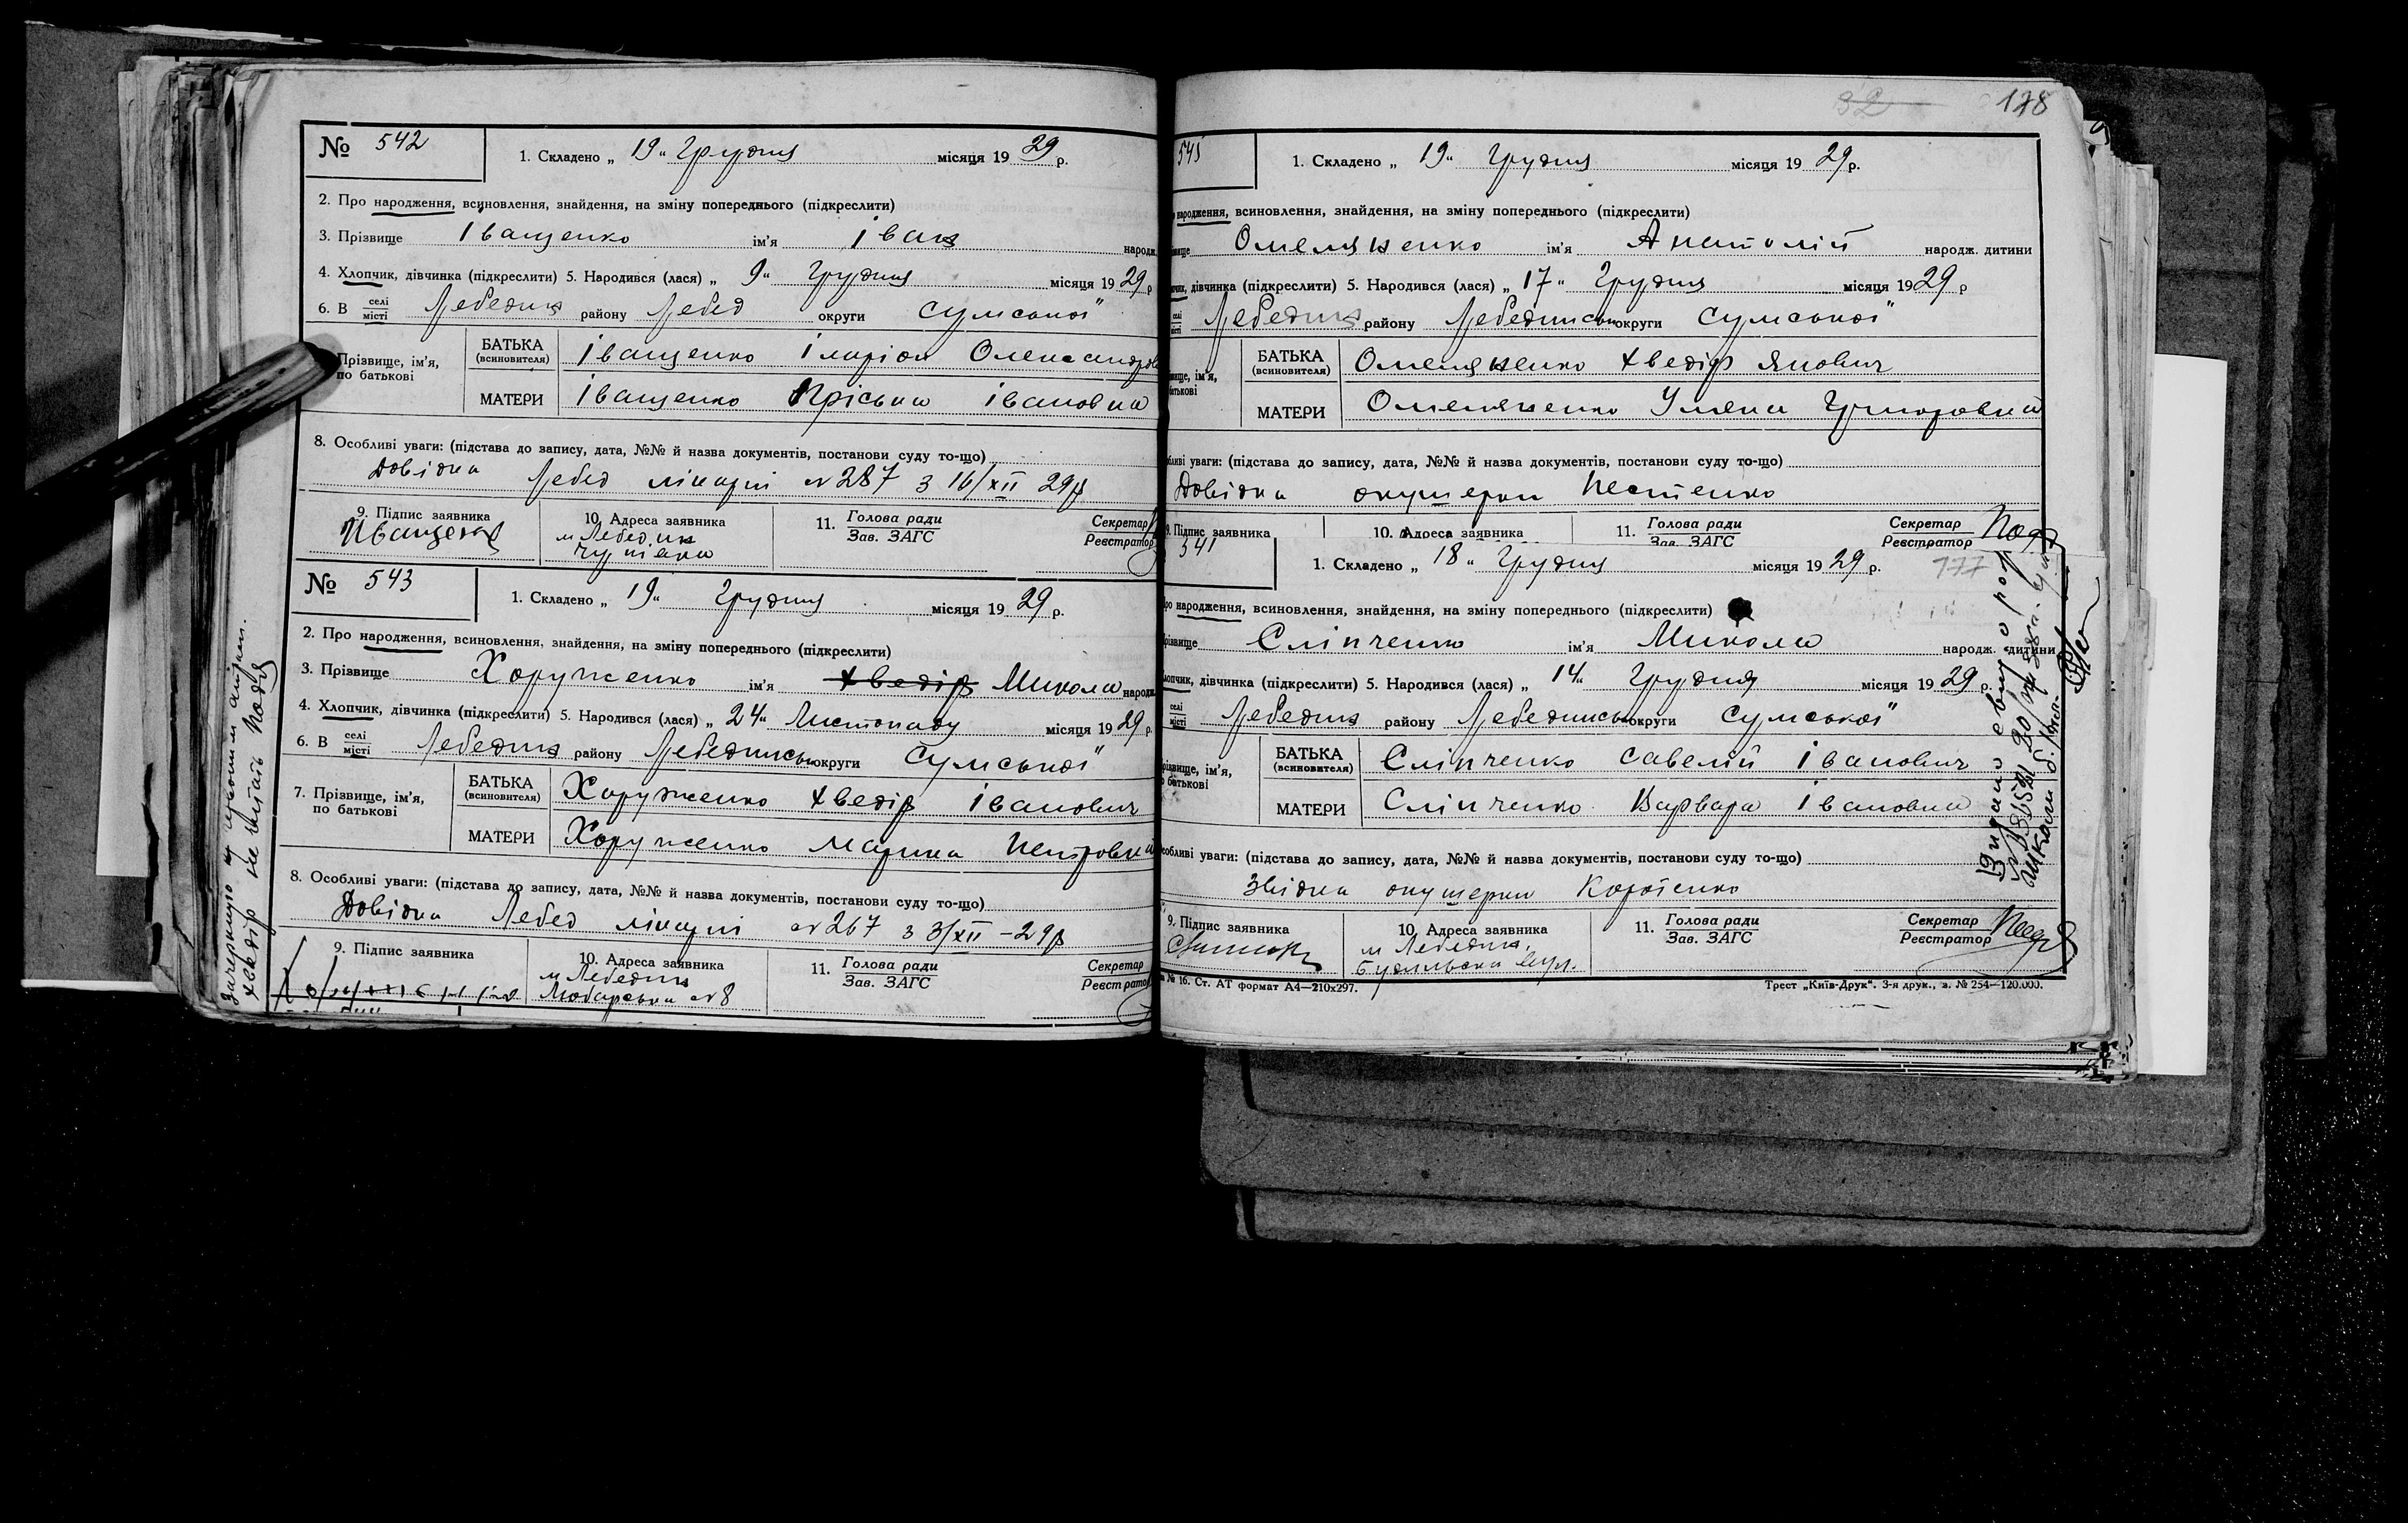 № 542
1. Складено „ 19 “ Грудня місяця 19 29 р.
2. Про народження, всиновлення, знайдення, на зміну попереднього (підкреслити)
3. Прізвище Іващенко ім'я Іван народж.
4. Хлопчик, дівчинка (підкреслити) 5. Народився (лася) „ 9 “ Грудня місяця 19 29 р
6. В селі місті Лебедин району Лебед округи Сумської
Прізвище, ім'я, по батькові
БАТЬКА (всиновителя) Іващенко Іларіон Олександров
МАТЕРИ Іващенко Пріська Івановна
8. Особливі уваги: (підстава до запису, дата, №№ й назва документів, постанови суду то-що)
Довідка Лебед лікарні № 287 з 16/XII 29р
9. Підпис заявника
10. Адреса заявника
11. Голова ради Зав. ЗАГС
Секретар Реєстратор
м Лебедин
№ 543
1. Складено „ 19 “ Грудня місяця 19 29 р.
2. Про народження, всиновлення, знайдення, на зміну попереднього (підкреслити)
3. Прізвище Хоруженко ім'я Хведір Микола народж.
4. Хлопчик, дівчинка (підкреслити) 5. Народився (лася) „ 24 “ Листопаду місяця 19 29 р.
6. В селі місті Лебедин району Лебединськ округи Сумської
7. Прізвище, ім'я, по батькові
БАТЬКА (всиновителя) Хоруженко Хведір Іванович
МАТЕРИ Хоруженко Марина Петровна
8. Особливі уваги: (підстава до запису, дата, №№ й назва документів, постанови суду то-що)
Довідка Лебед лікарні № 267 з 3/XII – 29р
9. Підпис заявника
10. Адреса заявника
11. Голова ради Зав. ЗАГС
Секретар Реєстратор
м Лебедин
№ 8
Хведір не читать
178
32
545
1. Складено „ 19 “ Грудня місяця 19 29 р.
народження, всиновлення, знайдення, на зміну попереднього (підкреслити)
Омеляненко ім'я Анатолій народж. дитини
дівчинка (підкреслити) 5. Народився (лася) „ 17 “ Грудня місяця 19 29 р
селі місті Лебедин району Лебединськ округи Сумської
БАТЬКА (всиновителя) Омеляненко Хведір Янович
МАТЕРИ Омеляненко Уляна Григоровна
уваги: (підстава до запису, дата, №№ й назва документів, постанови суду то-що)
Довідка окушерки Пестенко
9. Підпис заявника
10. Адреса заявника
11. Голова ради Зав. ЗАГС
Секретар Реєстратор
541
1. Складено „ 18 “ Грудня місяця 19 29 р.
177
народження, всиновлення, знайдення, на зміну попереднього (підкреслити)
Сліпченко ім'я Микола народж. дитини
дівчинка (підкреслити) 5. Народився (лася) „ 14 “ Грудня місяця 19 29 р.
селі місті Лебедин району Лебединськ округи Сумської
БАТЬКА (всиновителя) Сліпченко Савелій Іванович
МАТЕРИ Сліпченко Варвара Івановна
уваги: (підстава до запису, дата, №№ й назва документів, постанови суду то-що)
Звідка окушерки Коротенко
9. Підпис заявника
10. Адреса заявника
11. Голова ради Зав. ЗАГС
Секретар Реєстратор
м Лебедин,
№ 16. Ст. АТ формат А4—210х297.
Трест „Київ-Друк“. 3-я друк., з. № 254—120.000.